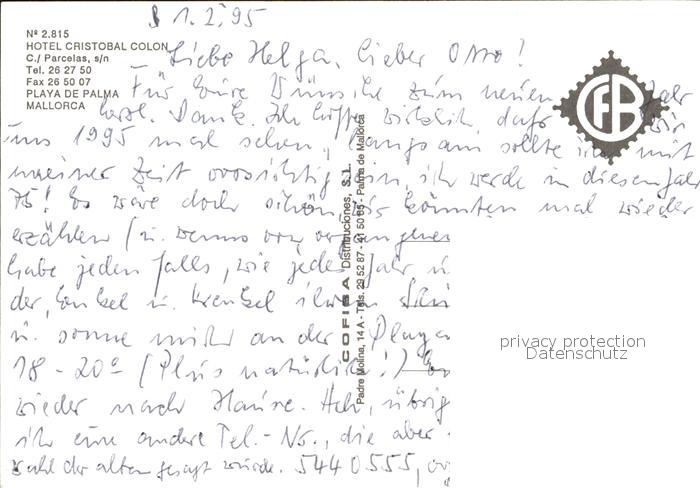 1.2.95
Nº 2.815
HOTEL CRISTOBAL COLON
C./ Parcelas, s/n
Tel. 26 27 50
Fax 26 50 07
PLAYA DE PALMA
MALLORCA
Liebe Helga, lieber Otto!
Für Eure Wünsche zum neuen Jahr
herzl. Dank. Ich hoffe wirklich, daß wir
uns 1995 mal sehen, langsam sollte ich mit
meiner Zeit vorsichtig sein, ich werde in diesem Jahr
75! Es wäre doch schön, wir könnten mal wieder
erzählen (u. wenns von vergangenen
habe jedenfalls, wie jedes Jahr u.
der, Enkel u. Urenkel
u. sonne mich an der Playa
18-20° (Plus natürlich!)
wieder nach Hause. Ach, übrig
ich eine andere Tel.-Nr., die aber
wahl der alten gesagt würde. 5440555,
CFB
COFIBA Distribuciones, S.L.
Padre Molina, 14 A - Tels. 29 52 87 - 41 50 05 - Palma de Mallorca
privacy protection
Datenschutz